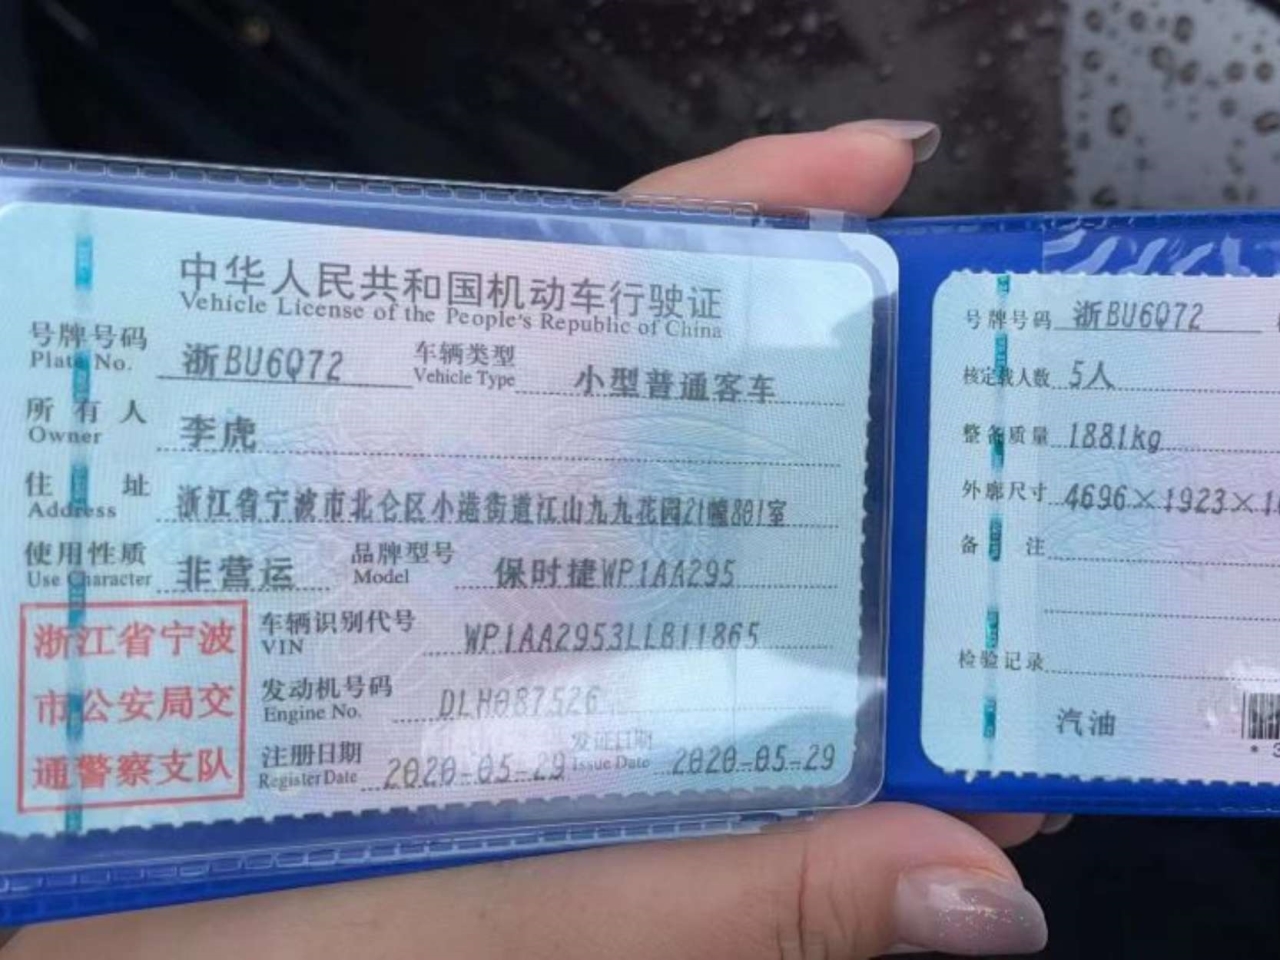 中华人民共和国机动车行驶证
Vehicle License of the People's Republic of China
号牌号码 浙BU6Q72 车辆类型 小型普通客车
Plate No. Vehicle Type
所有人 李虎
Owner
住址 浙江省宁波市北仑区小港街道江山九九花园21幢801室
Address
使用性质 非营运 品牌型号 保时捷WP1AA295
Use Character Model
浙江省宁波
市公安局交
通警察支队
车辆识别代号 WP1AA2953LLB11865
VIN
发动机号码 DLH087526
Engine No.
注册日期 2020-05-29 发证日期 2020-05-29
Register Date Issue Date
号牌号码 浙BU6Q72
核定载人数 5人
整备质量 1881kg
外廓尺寸 4696×1923×1
备注
检验记录
汽油